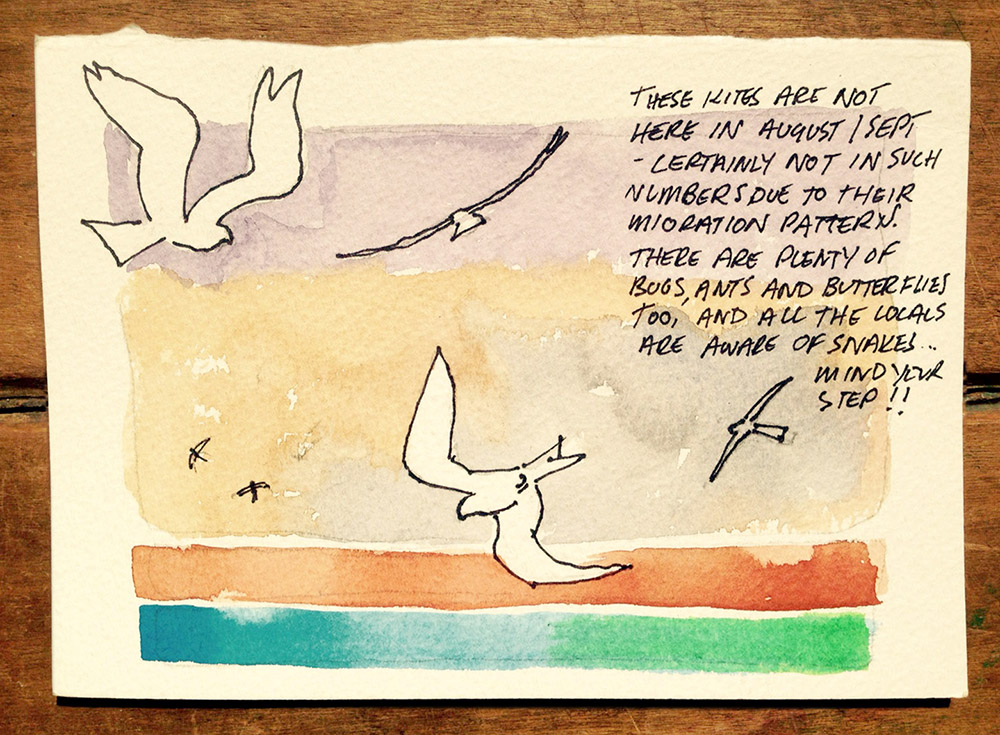 THESE KITES ARE NOT
HERE IN AUGUST / SEPT
- CERTAINLY NOT IN SUCH
NUMBERS DUE TO THEIR
MIGRATION PATTERNS.
THERE ARE PLENTY OF
BUGS, ANTS AND BUTTERFLIES
TOO, AND ALL THE LOCALS
ARE AWARE OF SNAKES...
MIND YOUR
STEP!!